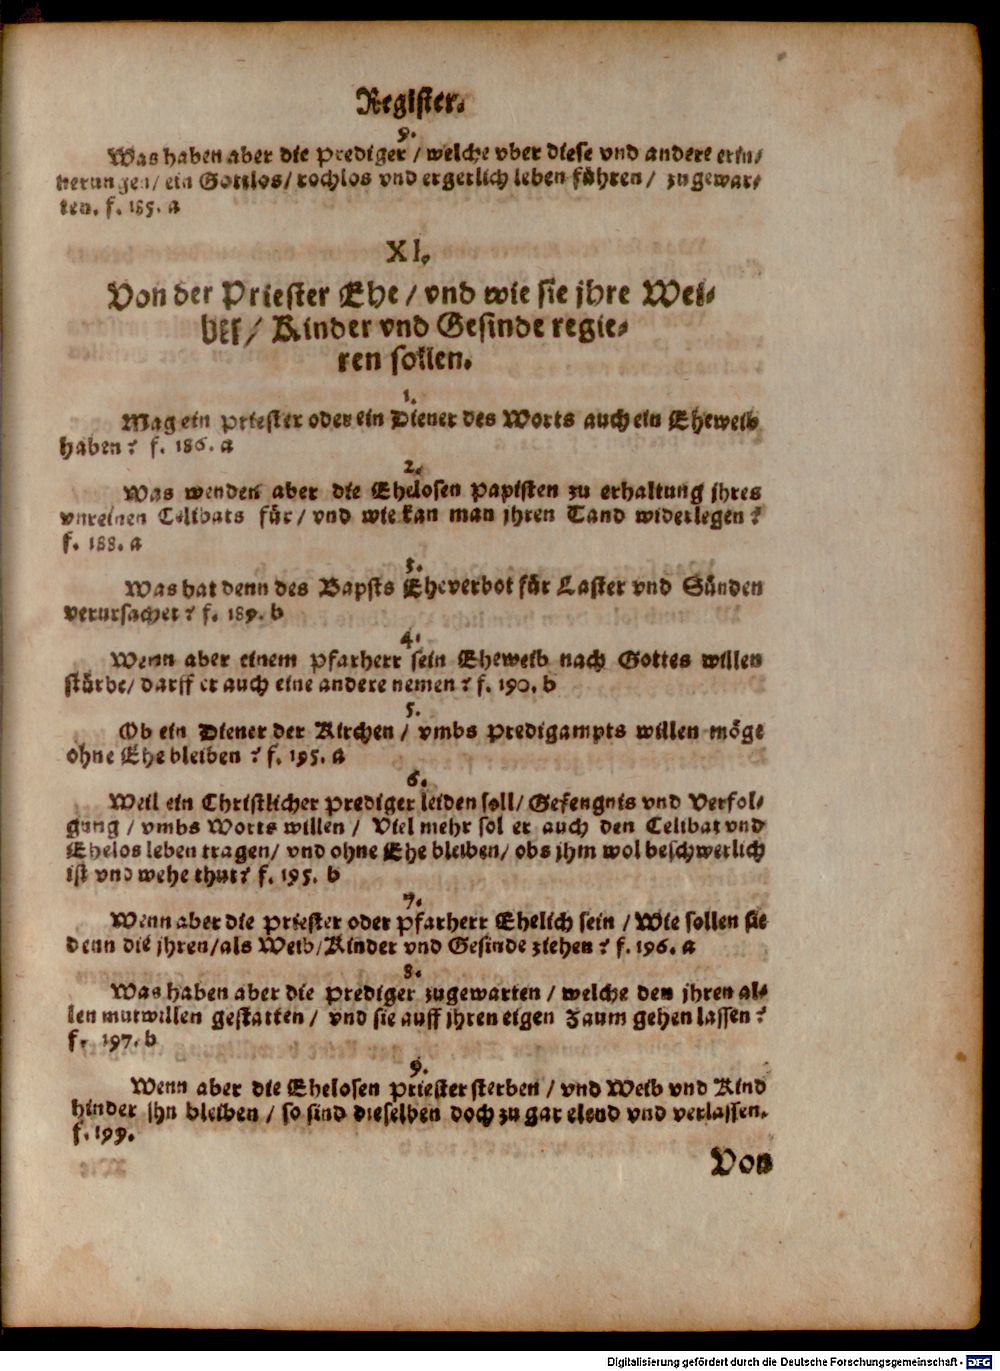 Register.
9.
Was haben aber die Prediger / welche vber diese vnd andere erin-
nerungen / ein Gottlos / rochlos vnd ergerlich leben führen / zugewar-
ten. f. 185. a
XI.
Von der Priester Ehe / vnd wie sie jhre Wei-
ber / Kinder vnd Gesinde regie-
ren sollen.
1.
Mag ein Priester oder ein Diener des Worts auch ein Eheweib
haben? f. 186. a
2.
Was wenden aber die Ehelosen Papisten zu erhaltung jhres
vnreinen Celibats für / vnd wie kan man jhren Tand widerlegen?
f. 188. a
3.
Was hat denn des Bapsts Eheverbot für Laster vnd Sünden
verursachet? f. 189. b
4.
Wenn aber einem Pfarherr sein Eheweib nach Gottes willen
stürbe / darff er auch eine andere nemen? f. 190. b
5.
Ob ein Diener der Kirchen / vmbs Predigampts willen möge
ohne Ehe bleiben? f. 195. a
6.
Weil ein Christlicher Prediger leiden soll / Gefengnis vnd Verfol-
gung / vmbs Worts willen / Viel mehr sol er auch den Celibat vnd
Ehelos leben tragen / vnd ohne Ehe bleiben / obs jhm wol beschwerlich
ist vnd wehe thut? f. 195. b
7.
Wenn aber die Priester oder Pfarherr Ehelich sein / Wie sollen sie
denn die jhren / als Weib / Kinder vnd Gesinde ziehen? f. 196. a
8.
Was haben aber die Prediger zugewarten / welche den jhren al-
len mutwillen gestatten / vnd sie auff jhren eigen Zaum gehen lassen?
f. 197. b
9.
Wenn aber die Ehelosen Priester sterben / vnd Weib vnd Kind
hinder jhn bleiben / so sind dieselben doch zu gar elend vnd verlassen.
f. 199.
Von
Digitalisierung gefördert durch die Deutsche Forschungsgemeinschaft - DFG